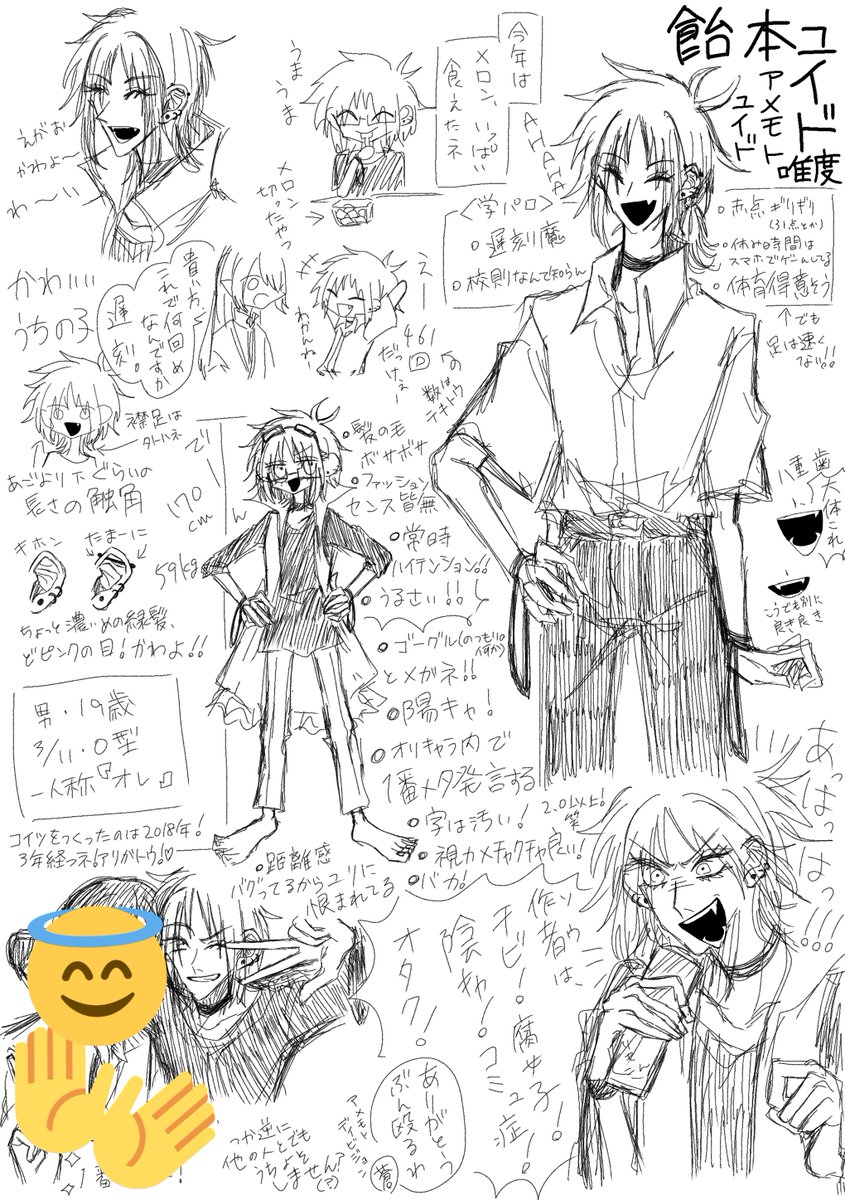 飴本ユイド
アメモトユイド
唯度
今年は
メロン、いっぱい
食えたネ
うまうま
メロン
切ったやつ
えがお
かわよ〜
わ〜い
AHAHA
<学パロ>
○遅刻魔
○校則なんて知らん
○赤点ギリギリ
(31点とか)
○休み時間は
スマホでゲームしてる
○体育得意そう
↑でも
足は速く
ない!!
かわいい
うちの子
貴い方、
これで何回め
なんですか
遅刻。
えー
わかんね
461回
だっけぇ〜
の
数は
テキトウ
襟足は
外ハネ
あごより下ぐらいの
長さの触角
キホン
たまーに
ちょっと濃いめの緑髪、
どピンクの目!かわよ!!
170
cm
59kg
○髪の毛
ボサボサ
○ファッション
センス皆無
○常時
ハイテンション!!
○うるさい!!
○ゴーグル(のつもり。
とメガネ!!
○陽キャ!
○オリキャラ内で
1番メタ発言する
○字は汚い!
2.0以上!
笑
○視力メチャクチャ良い!
○バカ!
○距離感
バグってるからユリに
恨まれてる
八重歯
大体これ
こうでも別に
良き良き
男・19歳
3/11・O型
一人称『オレ』
コイツをつくったのは2018年!
3年経っネ!アリガトウ!♡
あっはっはっ!!!
作者は、
チビ!腐女子!
陰キャ!コミュ症!
オタク!
ありがとう
ぶん殴るわ
アメモト
ディビジョン
つか逆に
他の人とでも
うちよそ
しません?
(?)
1番